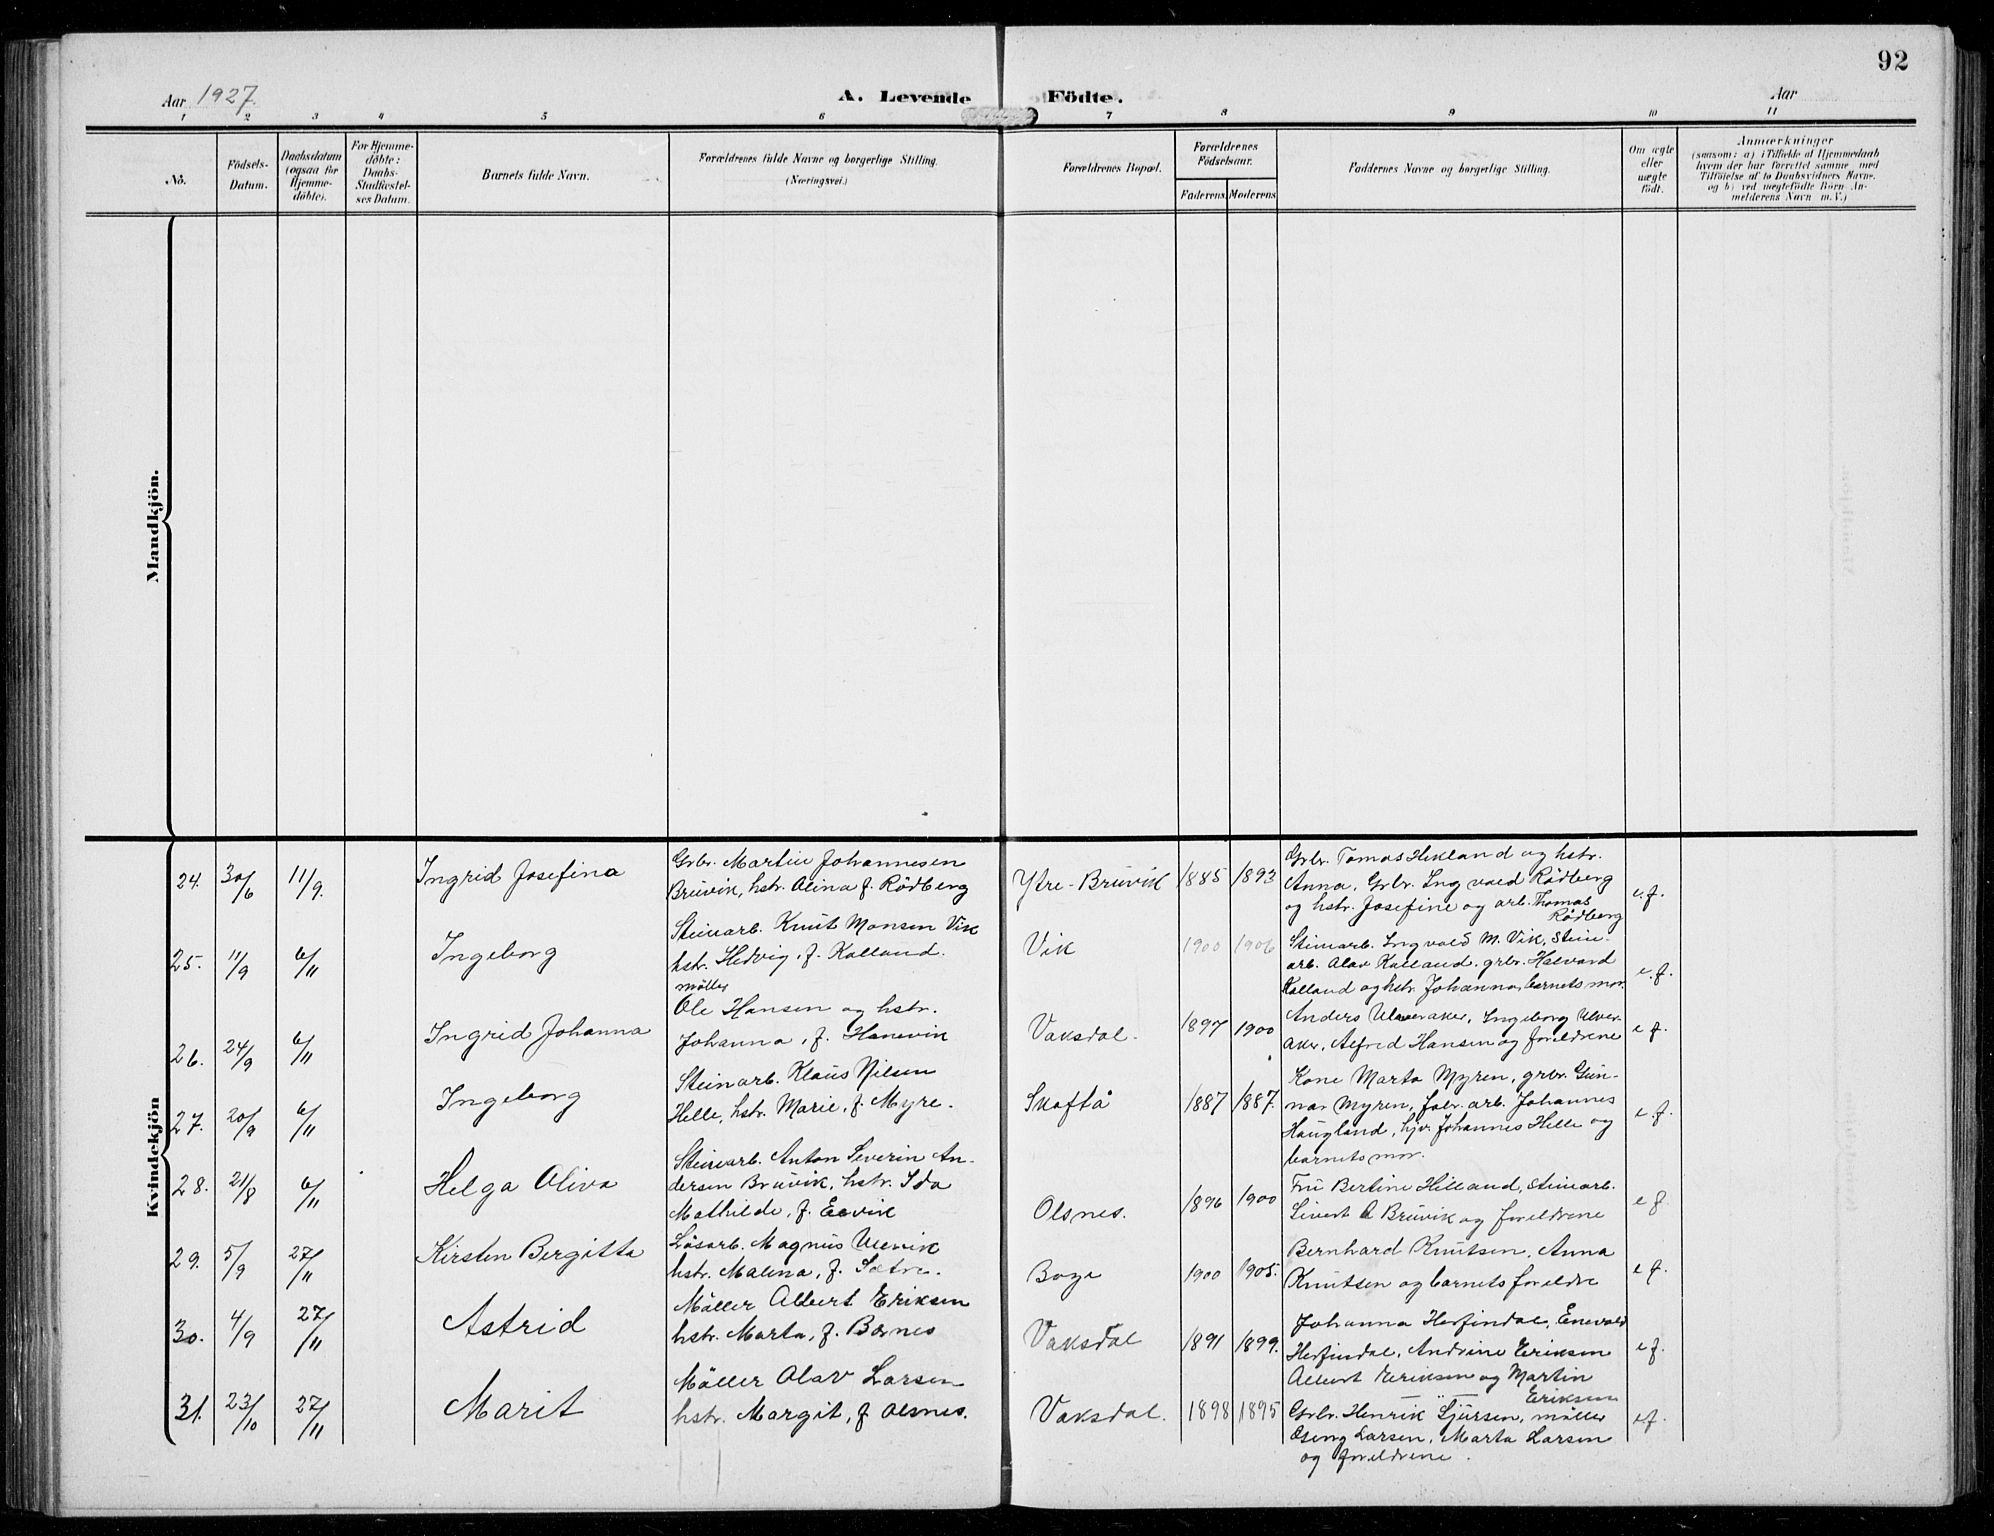 92
Aar 1927.
A. Levende Födte.
Aar
1 2 3 4 5 6 7 8 9 10 11
No.
Födsels-Datum.
Daabsdatum (ogsaa for Hjemme-døbte).
For Hjemme-døbte: Daabs-Stadfæstel-ses Datum.
Barnets fulde Navn.
Forældrenes fulde Navne og borgerlige Stilling.
(Næringsvei.)
Forældrenes Bopæl.
Forældrenes Fødselsaar.
Faderens. Moderens
Faddernes Navne og borgerlige Stilling.
Om ægte eller uægte født.
Anmærkninger
(saasom: a) i Tilfælde af Hjemmedaab
hvem der har forrettet samme, med
Tilføielse af to Daabsvidners Navne.
og b) ved uægtefødte Børn An-
melderens Navn m.V.)
Mandkjön.
Kvindekjön
24. 30/6 11/9. Ingrid Josefina
Grbr. Martin Johannesen
Bruvik, hstr. Alina f. Rödberg
Ytre-Bruvik 1885 1893
Grbr. Tomas Hekland og hstr.
Anna, Grbr. Ingvald Rödberg
og hstr. Josefine og arb. Thomas
Rödberg
e.f.
25. 11/9 6/11 Ingeborg
Steinarb. Knut Monsen Vik
hstr. Hedvig, f. Kalland.
Vik 1900 1906
Steinarb. Ingvald M. Vik, Stein-
arb. Alav Kalland, grbr. Halvard
Kalland og hstr. Johanna, barnets mor.
e.f.
26. 24/9 6/11 Ingrid Johanna
möller
Ole Hansen og hstr.
Johanna, f. Hanevik
Vaksdal. 1897 1900
Anders Ulveraker, Ingeborg Ulver-
aker, Alfred Hansen og foreldrene
e f.
27. 20/9 6/11 Ingeborg
Steinarb. Klaus Nilsen
Helle, hstr. Marie, f. Myre.
Skaftå 1887 1887.
Kone Marta Myren, grbr. Gun-
nar Myren, fabr. arb. Johannes
Haugland, hjv. Johannes Helle og
barnets mor.
e.f.
28. 21/8 6/11 Helga Oliva
Steinarb. Anton Severin An-
dersen Bruvik, hstr. Ida
Mathilde, f. Eevik
Olsnes. 1896 1900
Fru Bertine Hilland, steinarb.
Sivert A Bruvik og foreldrene
e f.
29. 5/9 27/11 Kirsten Bergitta
Läsarb. Magnus Ulevik
hstr. Malena, f. Sætre.
Boge 1900 1905.
Bernhard Knutsen, Anna
Knutsen og barnets foreldre
e f.
30. 4/9 27/11 Astrid
Möller Albert Eriksen
hstr. Marta, f. Bernes
Vaksdal 1891 1899.
Johanna Herfindal, Enevald
Herfindal, Andrine Eriksen
Albert Eriksen og Martin
Eriksen
e f.
31. 23/10 27/11 Marit
Möller Olav Larsen
hstr. Margit, f Olsnes.
Vaksdal. 1898 1895
Grbr. Henrik Sjursen, möller
Georg Larsen, Marta Larsen
og foreldrene.
e f.